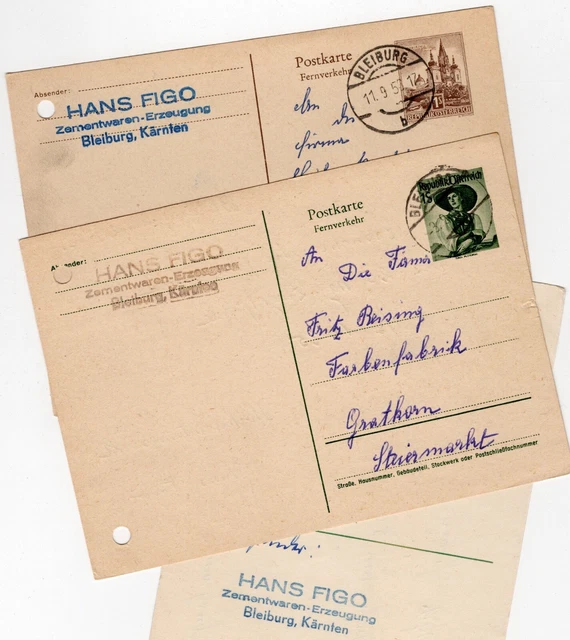 Absender:
HANS FIGO
Zementwaren-Erzeugung
Bleiburg, Kärnten
Postkarte
Fernverkehr
BLEIBURG
11.9.5
b
1S
REPUBLIK ÖSTERREICH
An die
Firma
Absender:
HANS FIGO
Zementwaren-Erzeugung
Bleiburg, Kärnten
Postkarte
Fernverkehr
Republik Österreich
An
Die Firma
Fritz Reising
Farbenfabrik
Gratkorn
Steiermarkt
Straße, Hausnummer, Gebäudeteil, Stockwerk oder Postschließfachnummer
HANS FIGO
Zementwaren-Erzeugung
Bleiburg, Kärnten